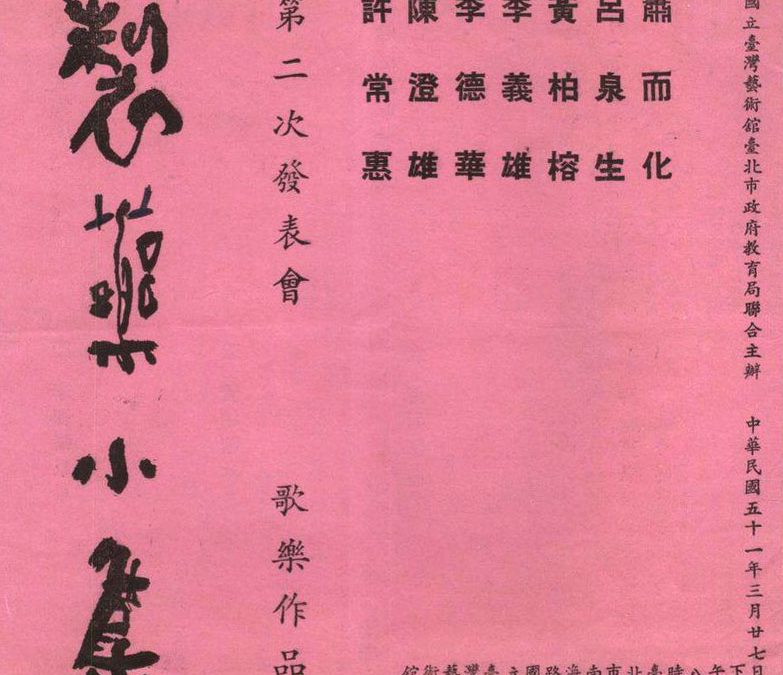 國立臺灣藝術館臺北市政府教育局聯合主辦　中華民國五十一年三月廿七日
下午八時臺北市南海路國立臺灣藝術館
蕭而化
呂泉生
黃柏榕
李義雄
李德華
陳澄雄
許常惠
第二次發表會　歌樂作品
製樂小集